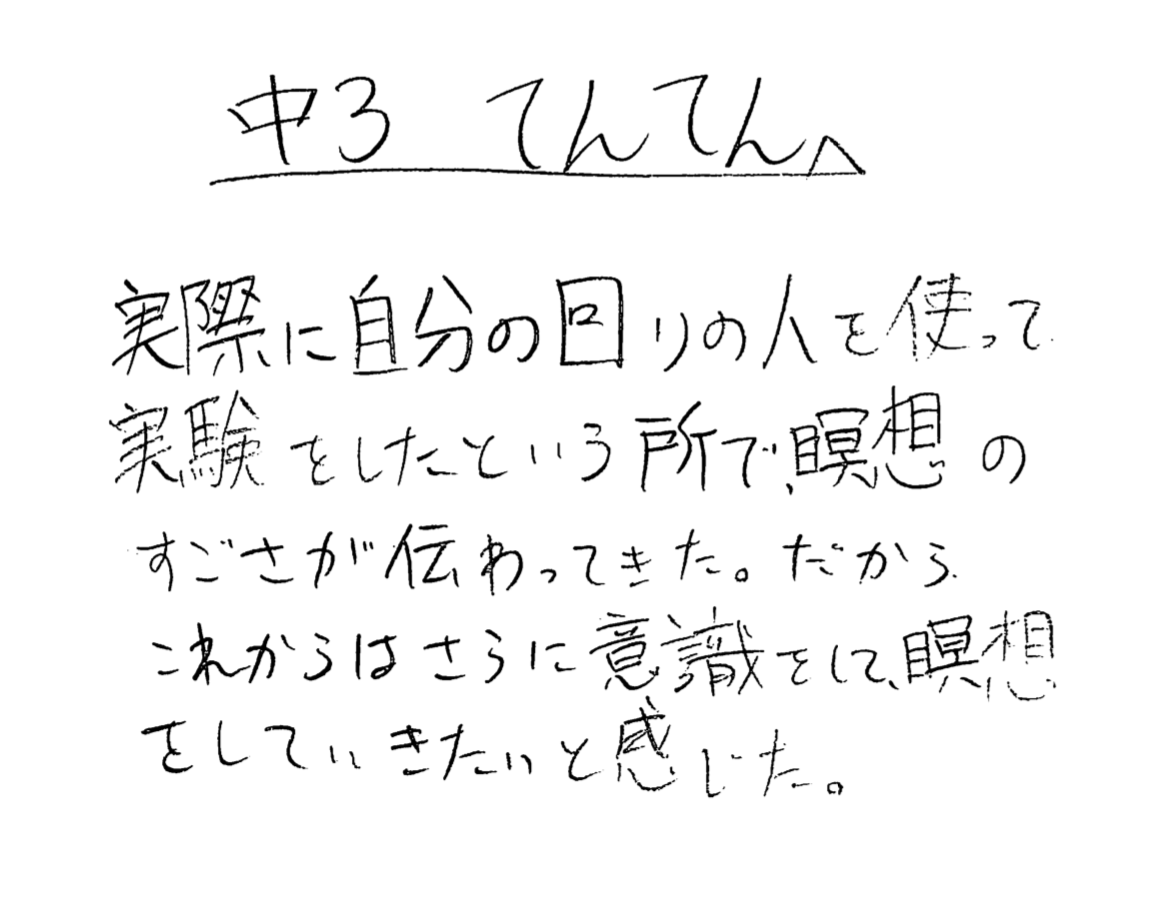 中3 てんてんへ
実際に自分の回りの人を使って
実験をしたという所で、瞑想の
すごさが伝わってきた。だから
これからはさらに意識をして、瞑想
をしていきたいと感じた。